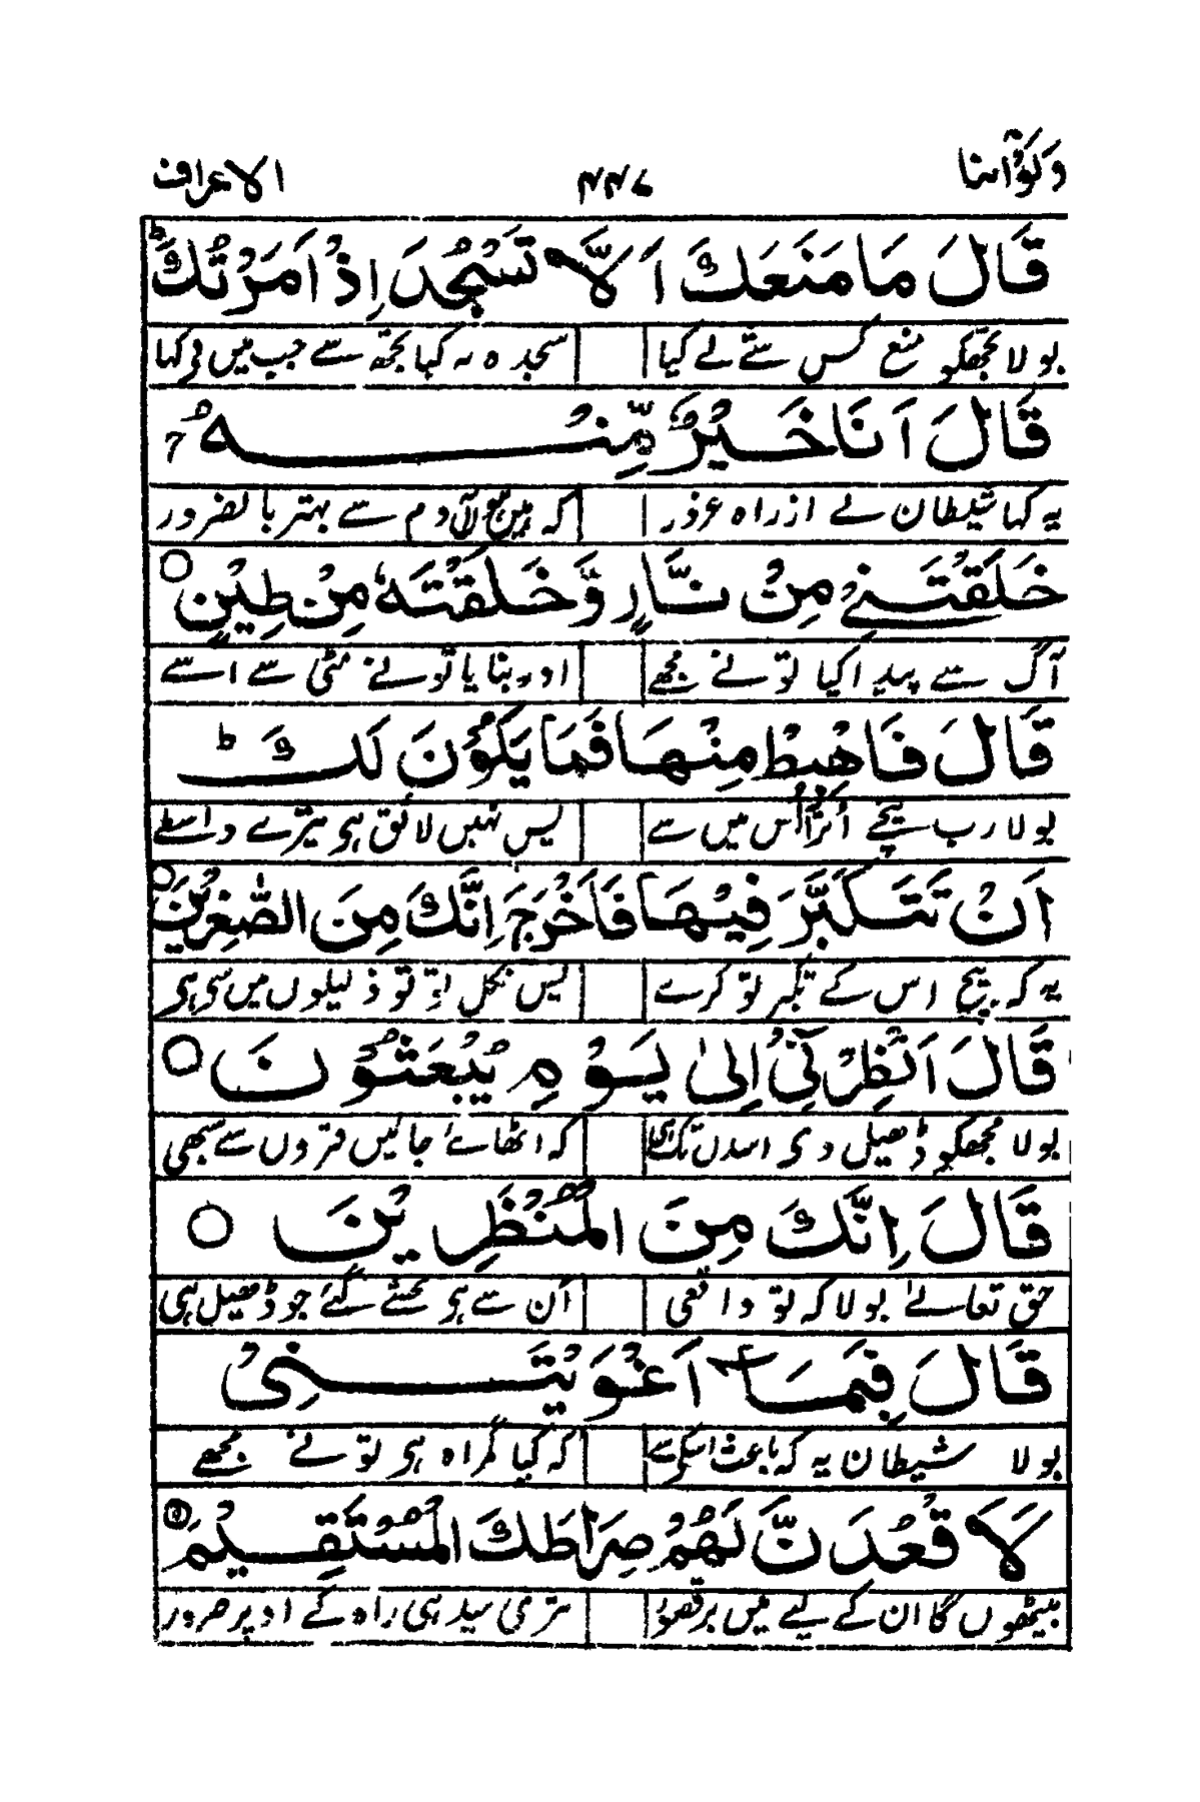 ولوأننا ۴۴۷ الاعراف
قَالَ مَا مَنَعَكَ اَلَّا تَسْجُدَ اِذْ اَمَرْتُكَ ؕ
بولا تجھکو منع کس شے نے کیا سجدہ نہ کیا تجھ سے جب میں نے کہا
قَالَ اَنَا خَيْرٌ مِّنْهُ
یہ کہا شیطان نے ازراہ غذر کہ میں ہوں آدم سے بہتر بالضرور
خَلَقْتَنِيْ مِنْ نَّارٍ وَّخَلَقْتَهٗ مِنْ طِيْنٍ ○
آگ سے پیدا کیا تو نے مجھے اور بنایا تو نے مٹی سے اسے
قَالَ فَاهْبِطْ مِنْهَا فَمَا يَكُوْنُ لَكَ ؕ
بولا رب نیچے اُتر اُس میں سے پس نہیں لائق ہی تیرے واسطے
اَنْ تَتَكَبَّرَ فِيْهَا فَاخْرُجْ اِنَّكَ مِنَ الصّٰغِرِيْنَ ○
یہ کہ بیچ اس کے تکبر تو کرے پس نکل تو تو ذلیلوں میں سے ہی
قَالَ اَنْظِرْنِيْٓ اِلٰى يَوْمِ يُبْعَثُوْنَ ○
بولا مجھکو ڈھیل دی اسدن تک کہ اٹھائے جائیں قبروں سے سبھی
قَالَ اِنَّكَ مِنَ الْمُنْظَرِيْنَ ○
حق تعالےٰ بولا کہ تو واقعی اُن سے ہی بخشے گئے جو ڈھیل ہی
قَالَ فَبِمَآ اَغْوَيْتَنِيْ
بولا شیطان یہ کہ باعث اسکے کہ کیا گمراہ ہی تو نے مجھے
لَاَقْعُدَنَّ لَهُمْ صِرَاطَكَ الْمُسْتَقِيْمَ
بیٹھوں گا ان کے لیے میں تیری سیدھی راہ کے اوپر ضرور